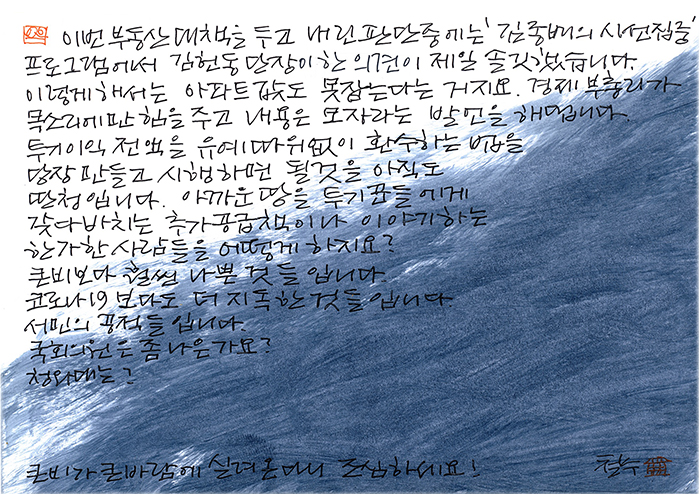 이번 부동산 대책을 두고 내린 판단중에는 '김종배의 시선집중'
프로그램에서 김헌동 단장이 한 의견이 제일 솔깃했습니다.
이렇게 해서는 아파트값도 못잡는다는 거지요. 경제 부총리가
목소리에만 힘을 주고 내용은 모자라는 발언을 해댑니다.
투기이익 전액을 유예따위없이 환수하는 법을
당장 만들고 시행하면 될것을 아직도
딴청입니다. 아까운 땅을 투기꾼들에게
갖다바치는 추가공급책이나 이야기하는
한가한 사람들을 어떻게 하지요?
큰비보다 훨씬 나쁜 것들입니다.
코로나19보다도 더 지독한 것들입니다.
서민의 공적들입니다.
국회의원은 좀 나은가요?
청와대는?
큰비가 큰바람에 실려온다니 조심하세요!
철수